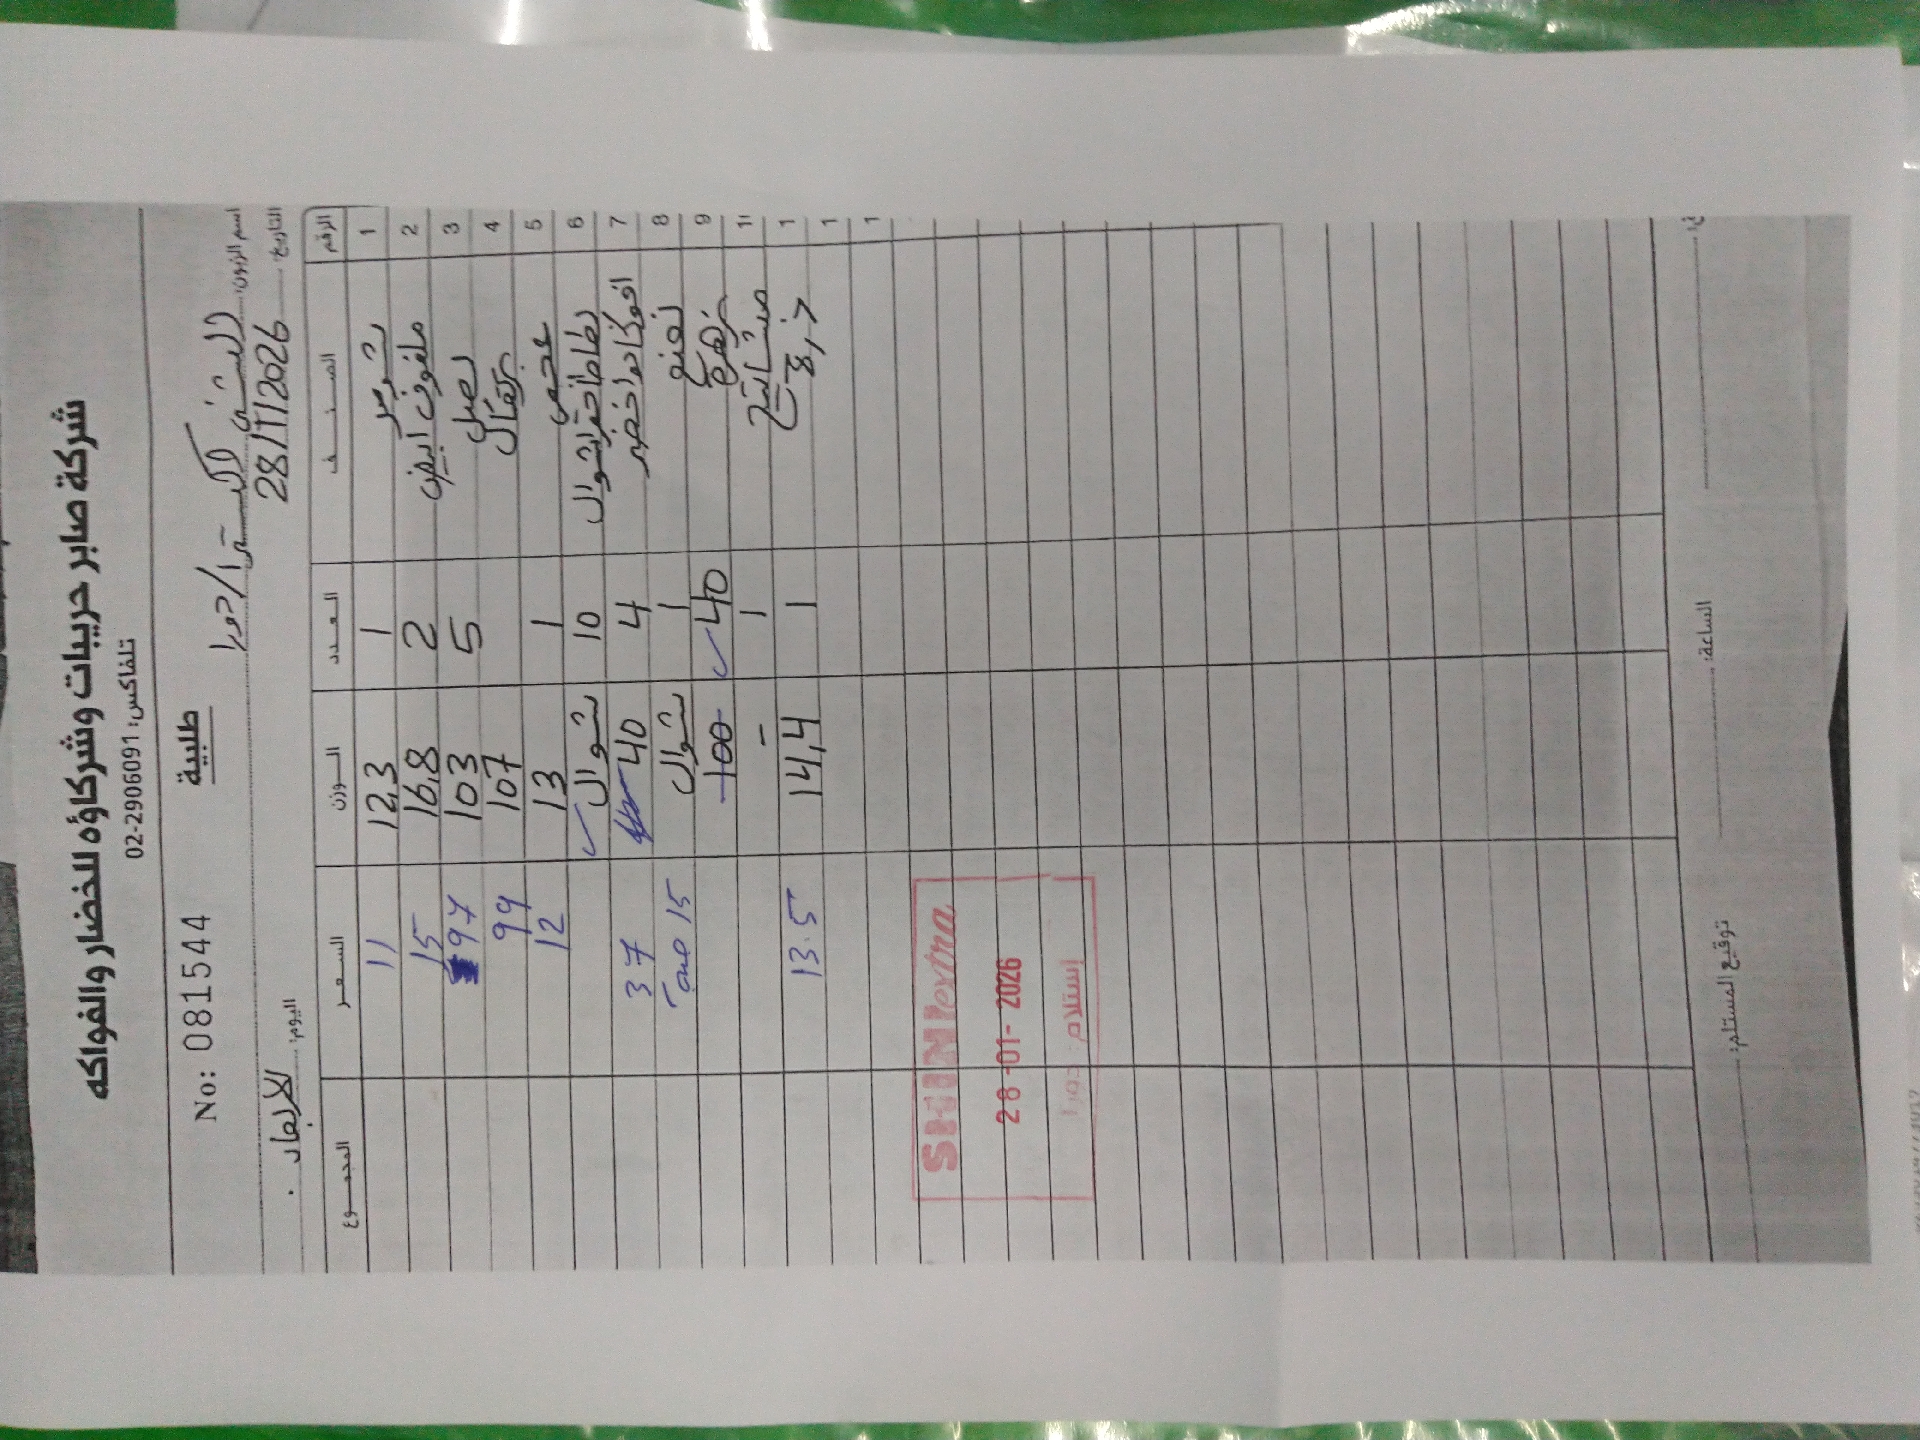 شركة صابر حريبات وشركاؤه للخضار والفواكه
تلفاكس: 02-2906091
طلبية
No: 081544
اسم الزبون: الشني اكسترا/دورا
التاريخ: 28/1/2026 اليوم: الاربعاء
الرقم الصنف العدد الوزن السعر المجموع
1 شومر 1 12,3 11
2 ملفوف ابيض 2 16,8 15
3 بصل 5 103 97
4 برتقال 107 99
5 1 13 12
6 بطاطا احمر شوال 10 شوال
7 افوكادو اخضر 4 40 37
8 نعنع 1 شوال 15
9 زهرة 40 100
11 1 -
1 جزر 1 14,4 13.5
1
1
SHINI extra
28-01-2026
استلام: دورا
الساعة:
توقيع المستلم: